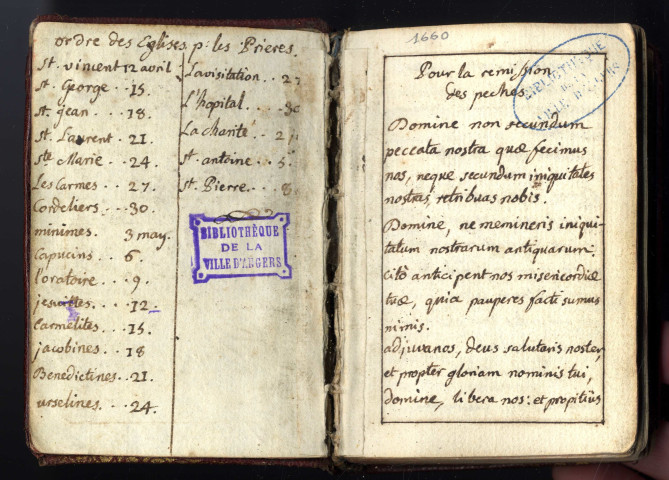 ordre des Eglises p: les Prieres.
st. vincent 12 avril
st. George . . 15.
st. jean . . . 18.
st. Laurent . 21.
ste Marie . . 24.
Les Carmes . . 27.
Cordeliers . . . 30.
minimes. 3 may.
Capucins . . 6.
l'oratoire . . 9.
12.
Carmelites . . 15.
jacobines . . 18
Benedictines . . 21.
urselines. . . . 24.
La visitation . . 27
L'hopital . . . 30
La charité . . 2
st. antoine . . 5.
st. Pierre . . . 8
BIBLIOTHÈQUE
DE LA
VILLE D'ANGERS
1660
BIBLIOTHÈQUE
DE LA
VILLE D'ANGERS
Pour la remission
des pechés.
Domine non secundum
peccata nostra quæ fecimus
nos, neque secundum iniquitates
nostras, retribuas nobis.
Domine, ne memineris iniqui-
tatum nostrarum antiquarum:
citò anticipent nos misericordiæ
tuæ, quia pauperes facti sumus
nimis.
adjuva nos, deus salutaris noster,
et propter gloriam nominis tui,
domine, libera nos: et propitius